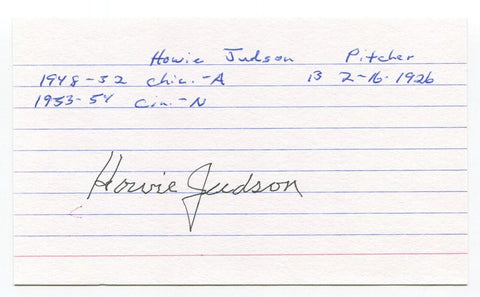 Howie Judson Pitcher
1948-52 Chic.-A B 2-16-1926
1953-54 Cin.-N
Howie Judson